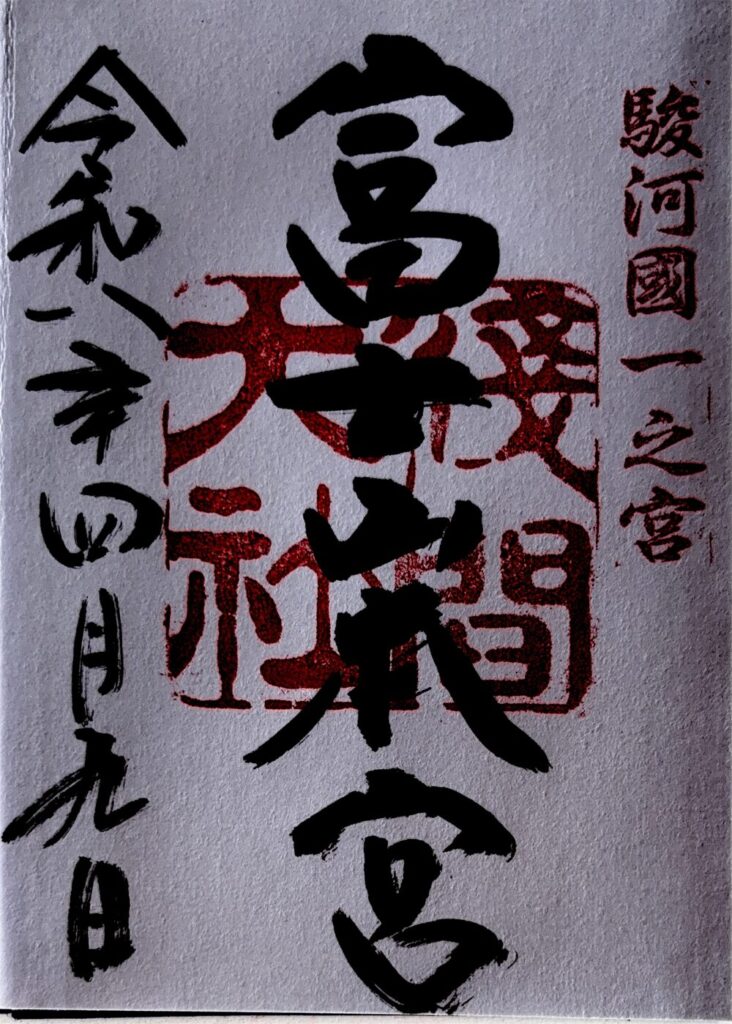 駿河國一之宮
富士山本宮
淺間
大社
令和八年四月九日